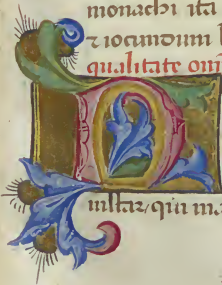 monachi ita
⁊ iocundum
qualitate om
D
qui ma